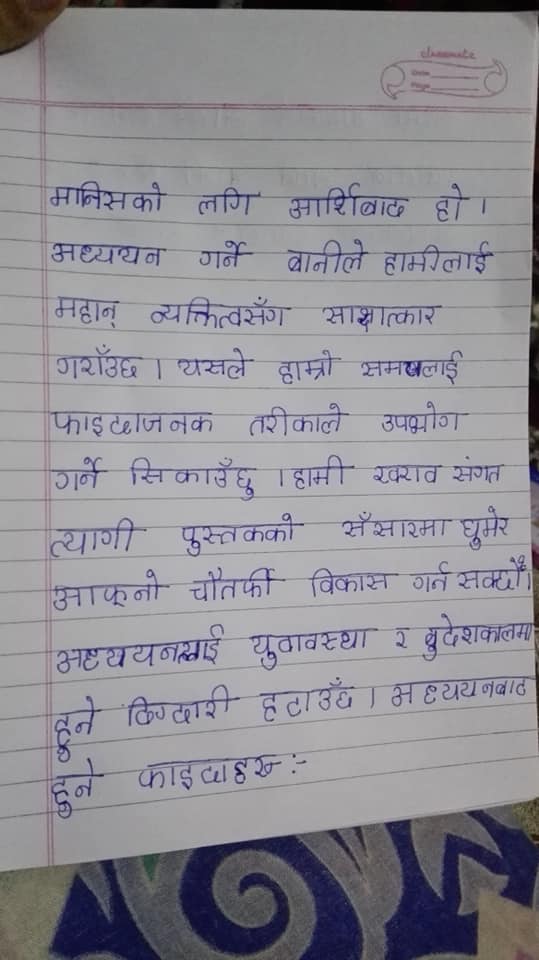 classmate
Date
Page
मानिसको लागि आर्शिबाद हो ।
अध्ययन गर्ने बानीले हामीलाई
महान् व्यक्तित्वसँग साक्षात्कार
गराँउछ । यसले हाम्रो समयलाई
फाइदाजनक तरीकाले उपभोग
गर्ने सिकाउँछु । हामी खराव संगत
त्यागी पुस्तकको सँसारमा घुमेर
आफ्नो चौतर्फी विकास गर्न सक्छौँ।
अध्ययनलाई युवावस्था र बुदेशकालमा
हुने दिग्दारी हटाउँछ । अध्ययनबाट
हुने फाइदाहरू :-